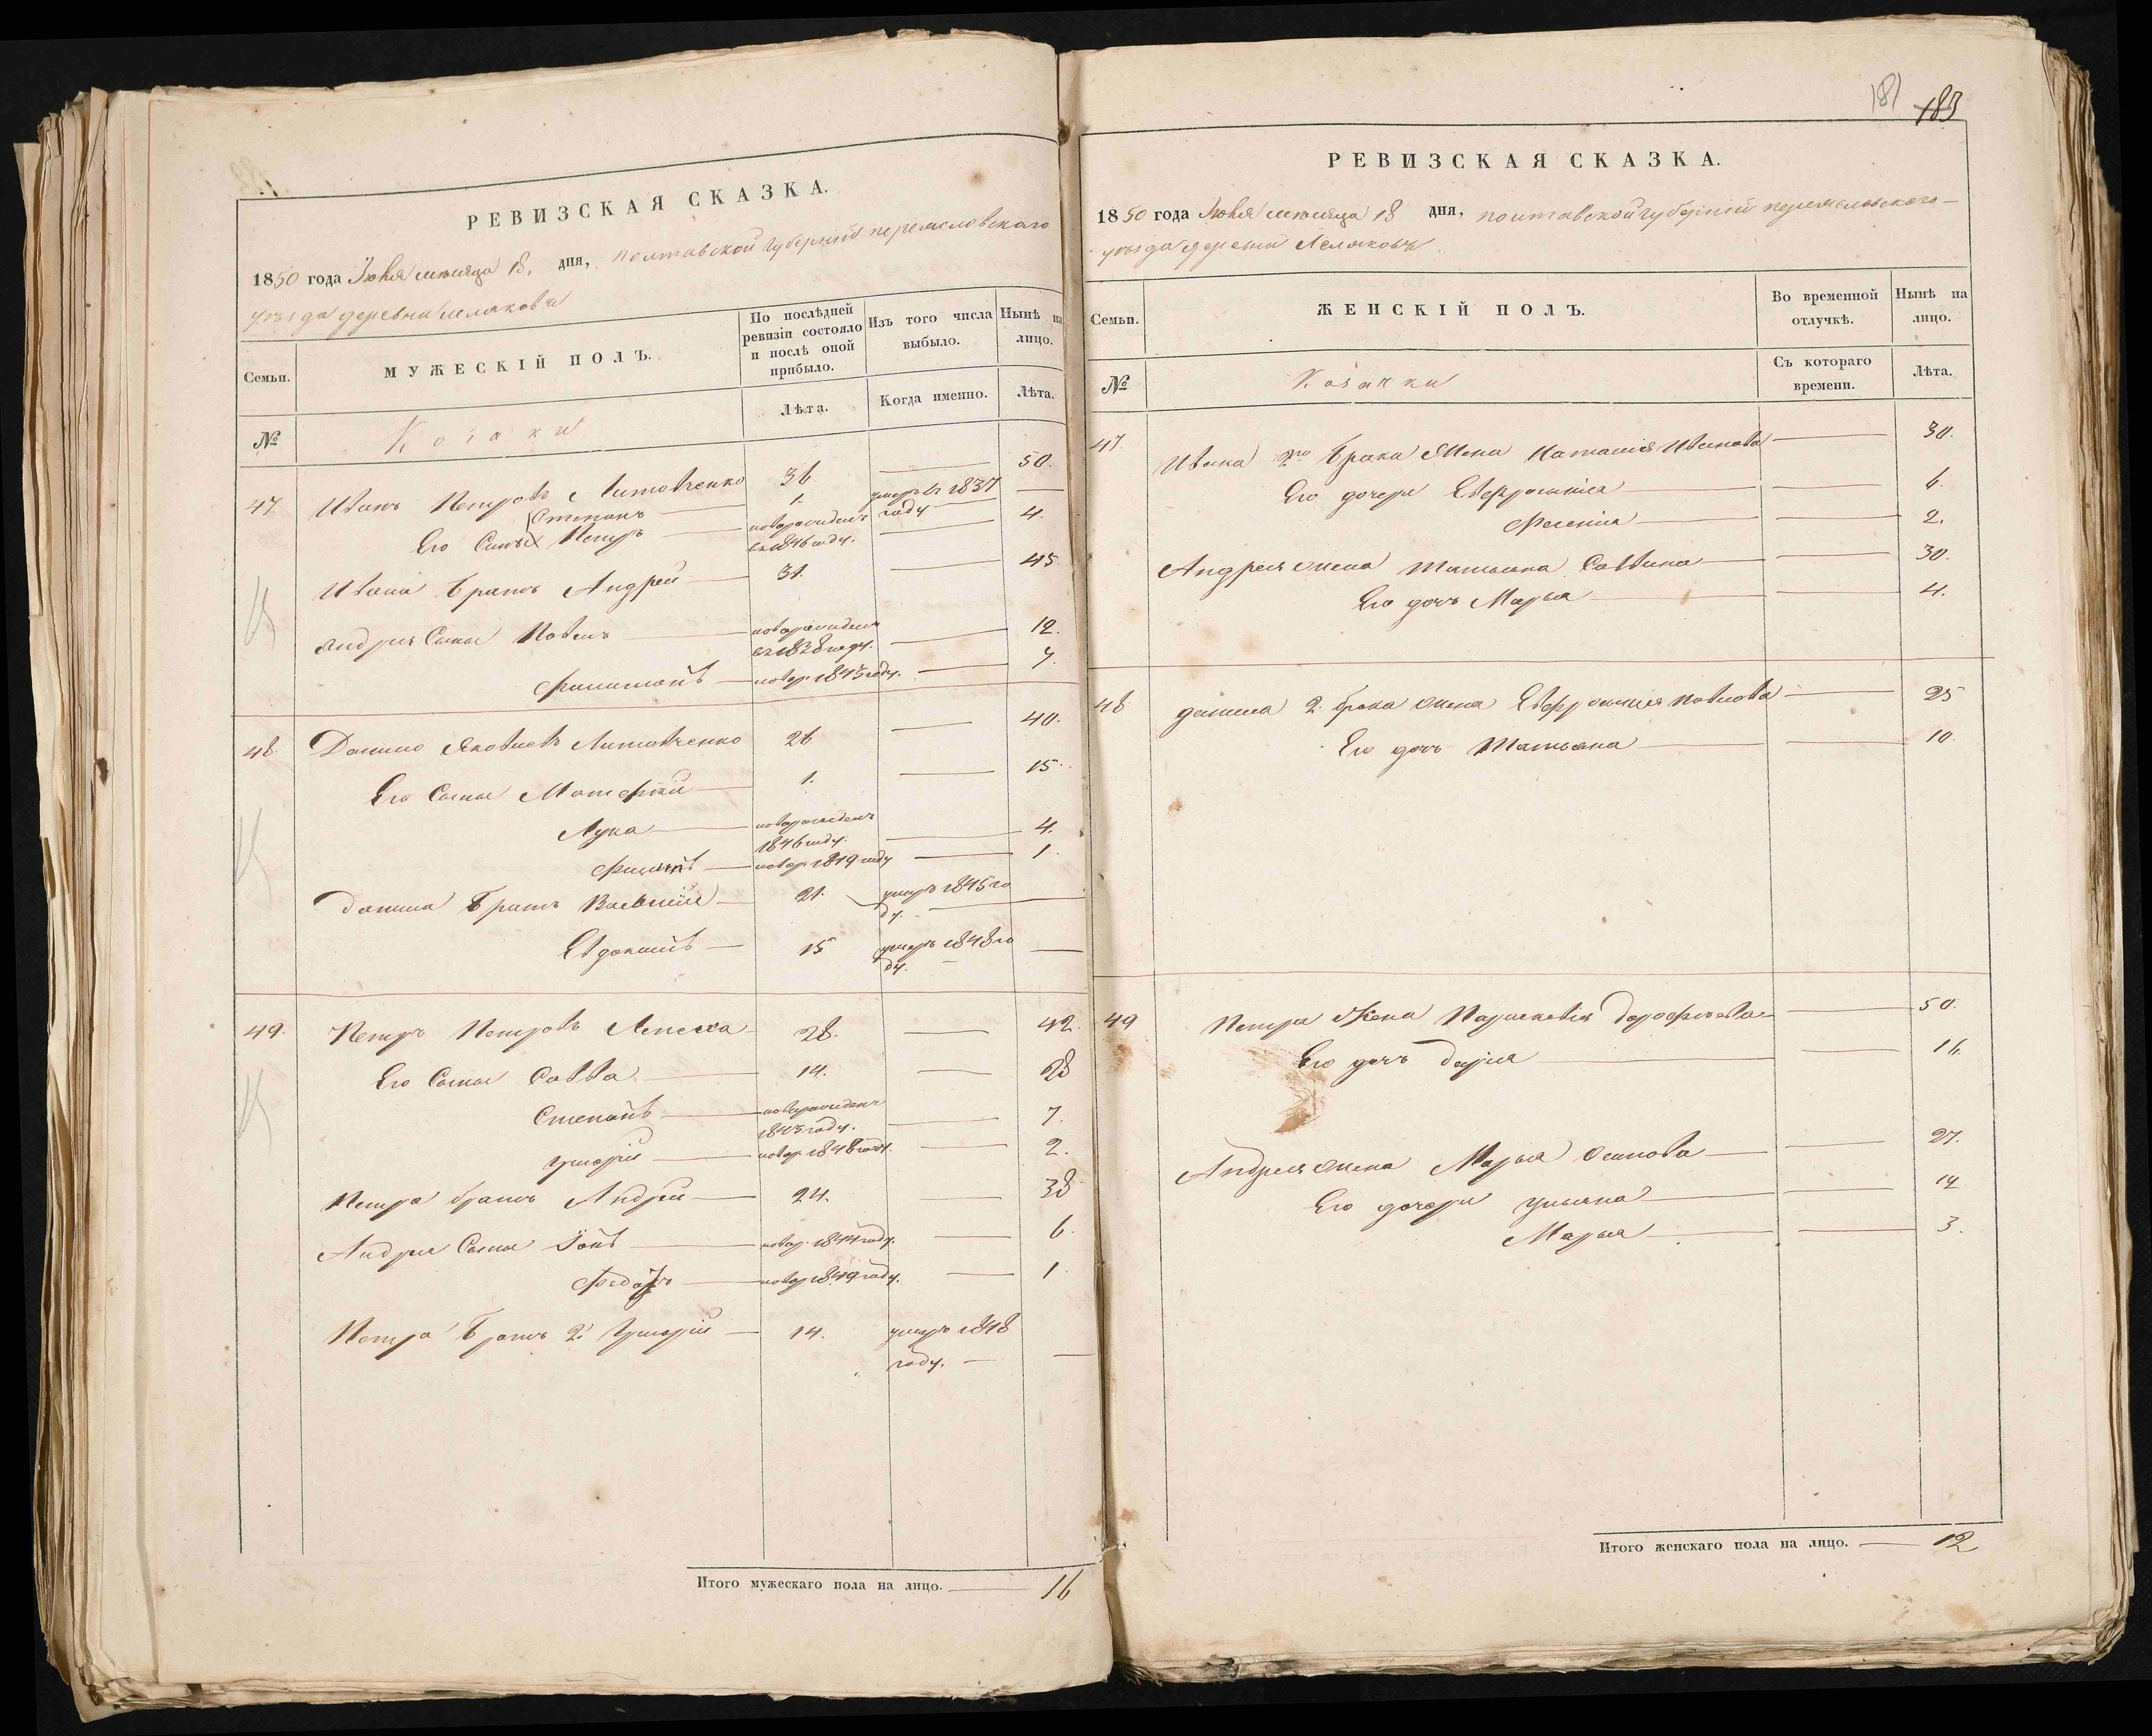 РЕВИЗСКАЯ СКАЗКА.
1850 года Июня месяца 18, дня, полтавской губернии переясловского
уезда деревни Леляковъ
Семьи.
МУЖЕСКІЙ ПОЛЪ.
По послѣдней ревизіи состояло и послѣ оной прибыло.
Изъ того числа выбыло.
Нынѣ на лицо.
№
Козаки
Лѣта.
Когда именно.
Лѣта.
47. Иванъ Петровъ Литовченко 36 — 50.
Степанъ — 1. умеръ въ 1837 году —
Его Сыны Петръ — новорожденъ въ 1846 году. — 4.
Ивана братъ Андрей — 31. — 45.
Андрея Сыны Павелъ — новорожденъ въ 1838 году. — 12.
Филимонъ — новор. 1843 году. — 7.
48. Данило Яковлевъ Литовченко 26. — 40.
Его Сыны Матефей — 1. — 15.
Лука — новорожденъ 1846 году. — 4.
— новор 1849 году — 1.
Данила Братъ Василий — 21. умеръ 1845 году. —
Евдокимъ — 15 умеръ 1848 году. —
49. Петръ Петровъ Лепеха 28. — 42.
Его Сыны Савва — 14. — 28
Степанъ — новорожденъ 1843 году. — 7.
Григорій — новор 1848 году. — 2.
Петра братъ Андрей — 24. — 38
Андрея Сыны Іонъ — новор. 1844 году. — 6.
Федоръ — новор 1849 году. — 1.
Петра Братъ 2. Григорій — 14. умеръ 1848 году. — —
Итого мужескаго пола на лицо. — 16
181 183
РЕВИЗСКАЯ СКАЗКА.
1850 года Июня месяца 18 дня, полтавской губерніи переясловского —
уезда деревни Леляковъ
Семьи.
ЖЕНСКІЙ ПОЛЪ.
Во временной отлучкѣ.
Нынѣ на лицо.
№
Козачки
Съ котораго времени.
Лѣта.
47. Ивана 2го брака Жена Наталия Иванова — 30.
Его дочери Евфросиния — — 6.
Фесенія — — 2.
Андрея жена Татьяна Саввина — — 30.
Его дочь Марья — — 4.
48 Данила 2. брака жена Евфросиния Павлова — 25
Его дочь Татьяна — — 10
49 Петра Жена Параскевія Дорофеева — 50.
Его дочь Дарья — — 16.
Андрея жена Марья Осипова — — 27.
Его дочери Ульяна — — 12
Марья — — 3.
Итого женскаго пола на лицо. — 12